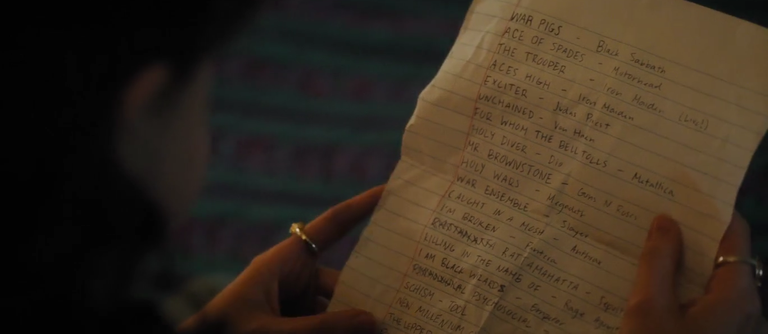 WAR PIGS - Black Sabbath
ACE OF SPADES - Motorhead
THE TROUPER - Iron Maiden (Live!)
ACES HIGH - Iron Maiden
EXLITER - Judas Priest
UNCHAINED - Van Halen
FUR WHOM THE BELL TOLLS - Metallica
HOLY DIVER - Dio
MR BROWNSTONE - Guns N
HOLY WARS - Megadeth
WAR ENSEMBLE - Slayer
CAUGHT IN A MOSH - Anthrax
I'M BROKEN - Pantera
RATAMAHATTA -
KILLING IN THE NAME OF - Rage
I AM BLACK
SCHISM - TOOL
NEW MILLENIUM
THE UPPER